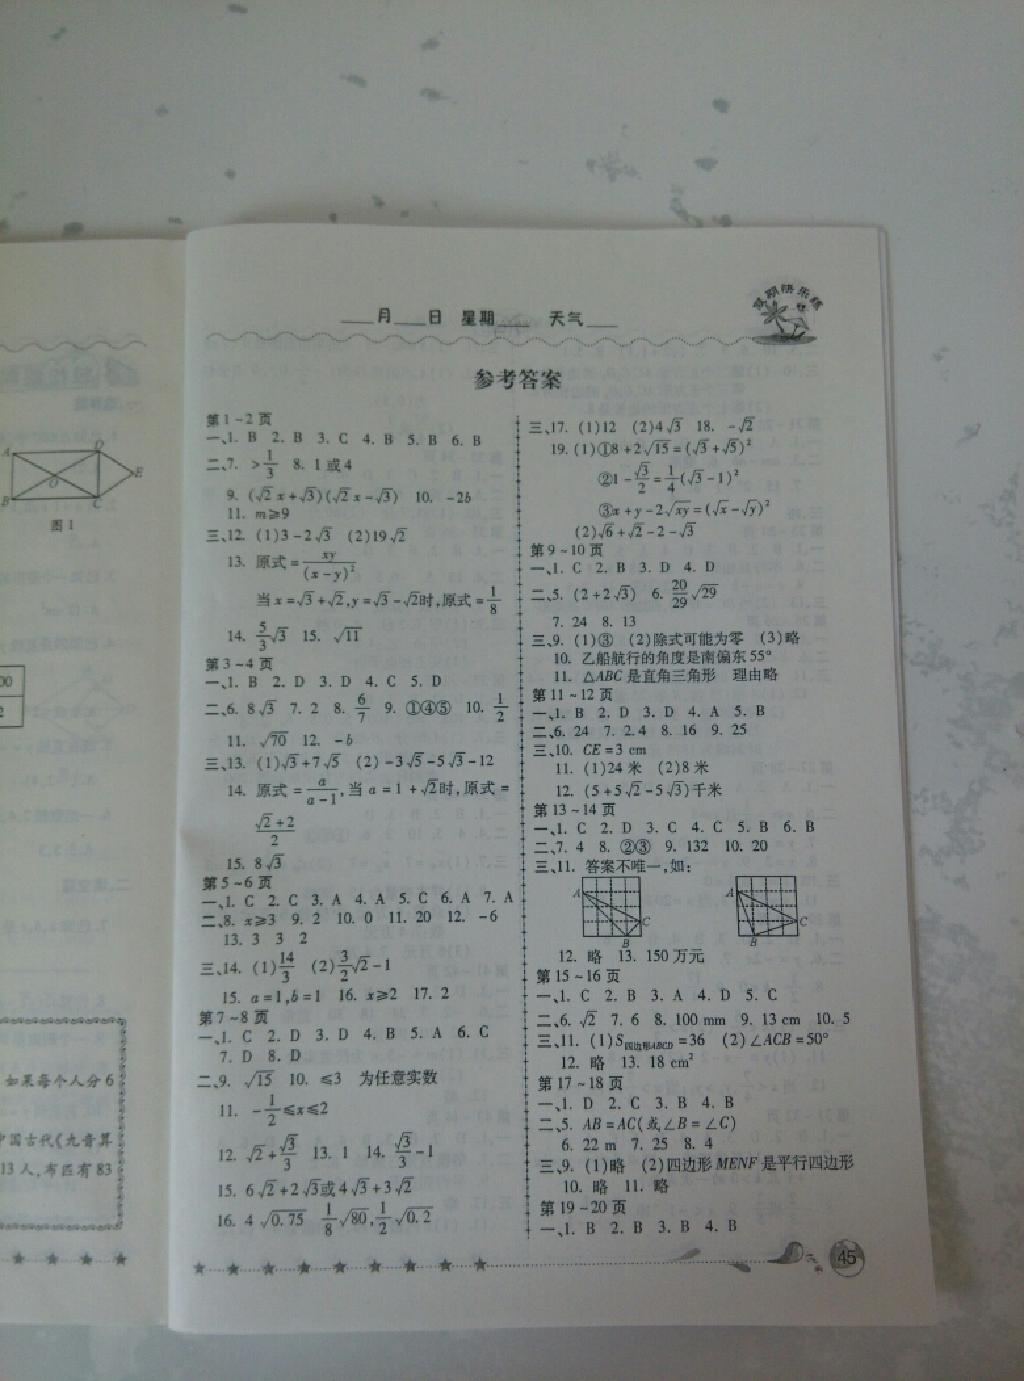 A
D
O
E
B
C
图1
00
2
如果每个人分6
中国古代《九章算
13人,布匹有83
假期快乐练
___月___日 星期___ 天气___
参考答案
第1~2页
一、1. B 2. B 3. C 4. B 5. B 6. B
二、7. >1/3 8. 1或4
9. (√2x+√3)(√2x-√3) 10. -2b
11. m≥9
三、12. (1)3-2√3 (2)19√2
13. 原式=xy/(x-y)²
当x=√3+√2,y=√3-√2时,原式=1/8
14. 5/3√3 15. √11
第3~4页
一、1. B 2. D 3. D 4. C 5. D
二、6. 8√3 7. 2 8. 6/7 9. ①④⑤ 10. 1/2
11. √70 12. -b
三、13. (1)√3+7√5 (2)-3√5-5√3-12
14. 原式=a/(a-1),当a=1+√2时,原式=
(√2+2)/2
15. 8√3
第5~6页
一、1. C 2. C 3. A 4. A 5. C 6. A 7. A
二、8. x≥3 9. 2 10. 0 11. 20 12. -6
13. 3 3 2
三、14. (1)14/3 (2)3/2√2-1
15. a=1,b=1 16. x≥2 17. 2
第7~8页
一、1. C 2. D 3. D 4. B 5. A 6. C
7. D 8. D
二、9. √15 10. ≤3 为任意实数
11. -1/2≤x≤2
12. √2+√3/3 13. 1 14. √3/3-1
15. 6√2+2√3或4√3+3√2
16. 4√0.75 1/8√80,1/2√0.2
三、17. (1)12 (2)4√3 18. -√2
19. (1)①8+2√15=(√3+√5)²
②1-√3/2=1/4(√3-1)²
③x+y-2√xy=(√x-√y)²
(2)√6+√2-2-√3
第9~10页
一、1. C 2. B 3. D 4. D
二、5. (2+2√3) 6. 20/29√29
7. 24 8. 13
三、9. (1)③ (2)除式可能为零 (3)略
10. 乙船航行的角度是南偏东55°
11. △ABC是直角三角形 理由略
第11~12页
一、1. B 2. D 3. D 4. A 5. B
二、6. 24 7. 2.4 8. 16 9. 25
三、10. CE=3 cm
11. (1)24米 (2)8米
12. (5+5√2-5√3)千米
第13~14页
一、1. C 2. D 3. C 4. C 5. B 6. B
二、7. 4 8. ②③ 9. 132 10. 20
三、11. 答案不唯一,如:
A C B A C B
12. 略 13. 150万元
第15~16页
一、1. C 2. B 3. A 4. D 5. C
二、6. √2 7. 6 8. 100 mm 9. 13 cm 10. 5
三、11. (1)S四边形ABCD=36 (2)∠ACB=50°
12. 略 13. 18 cm²
第17~18页
一、1. D 2. C 3. B 4. B
二、5. AB=AC(或∠B=∠C)
6. 22 m 7. 25 8. 4
三、9. (1)略 (2)四边形MENF是平行四边形
10. 略 11. 略
第19~20页
一、1. B 2. B 3. B 4. B
45